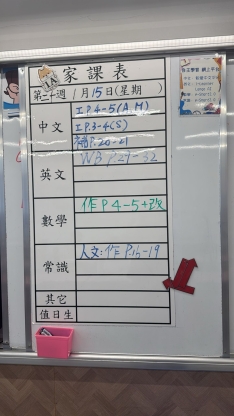 1A
家課表
第二十週 1月15日(星期 )
中文
工P.4-5(A,M)
工P.3-4(S)
補P.20-21
英文
WB P.29-32
數學
作P4-5+改
常識
人文:作P.15-19
其它
值日生